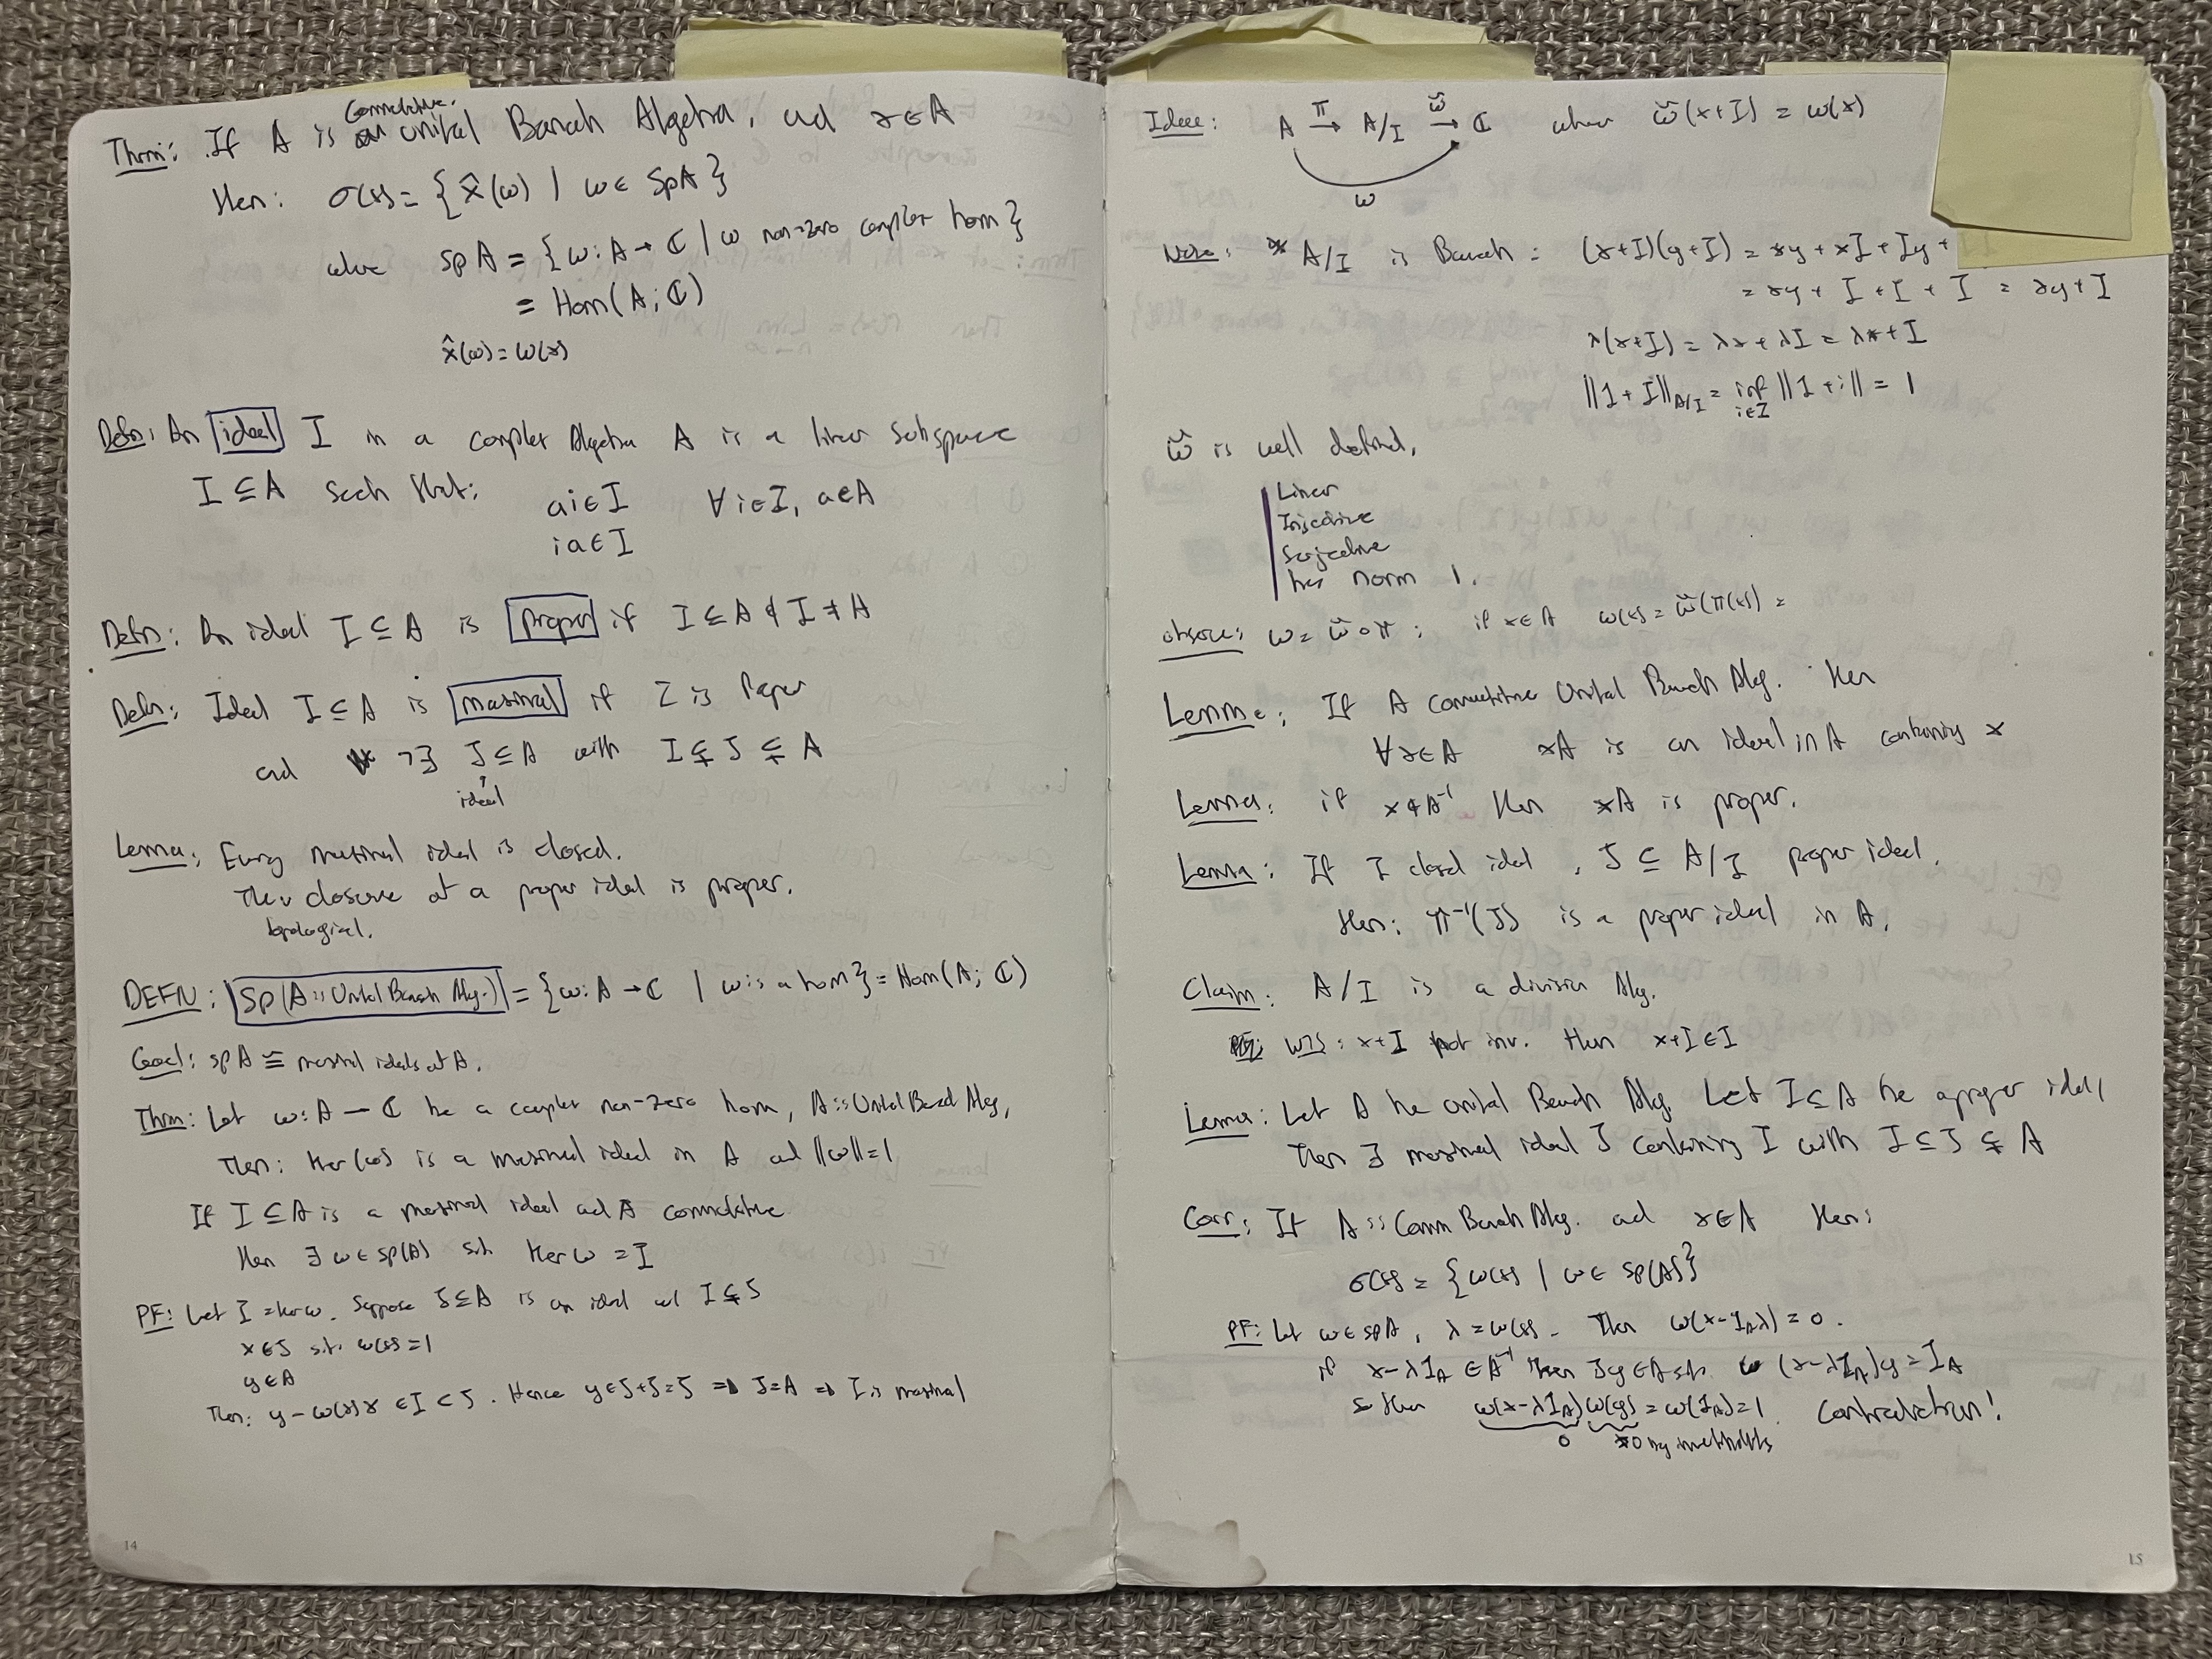 Thm: If A is commutative unital Banach Algebra, and x∈A
then: σ(x) = {x̂(ω) | ω∈ SpA}
where SpA = {ω: A→ℂ | ω non-zero complex hom}
= Hom(A; ℂ)
x̂(ω) = ω(x)
Defn: An ideal I in a complex Algebra A is a linear subspace
I ⊆ A such that: ai∈I ∀i∈I, a∈A
ia∈I
Defn: An ideal I ⊆ A is proper if I ⊆ A & I ≠ A
Defn: Ideal I ⊆ A is maximal if I is Proper
and ¬∃ J ⊆ A with I ⊊ J ⊊ A
ideal
Lemma: Every maximal ideal is closed.
The closure of a proper ideal is proper.
topological.
DEFN: Sp(A is Unital Banach Alg.) = {ω: A→ℂ | ω is a hom} = Hom(A; ℂ)
Goal: SpA ≅ maximal ideals of A.
Thm: Let ω: A → ℂ be a complex non-zero hom, A is Unital Banach Alg.
Then: Ker(ω) is a maximal ideal in A and ||ω||=1
If I ⊆ A is a maximal ideal and A commutative
then ∃ ω∈ Sp(A) s.t. Ker ω = I
PF: Let I = ker ω. Suppose J ⊆ A is an ideal w/ I ⊊ J
x∈J s.t. ω(x)=1
y∈A
Then: y - ω(y)x ∈ I ⊂ J. Hence y∈J+J=J ⇒ J=A ⇒ I is maximal
14
Idea: A →π A/I →ω̃ ℂ where ω̃(x+I) = ω(x)
ω
Note: A/I is Banach: (x+I)(y+I) = xy + xI + Iy +
= xy + I + I + I = xy + I
λ(x+I) = λx + λI = λx + I
||1+I||_{A/I} = inf_{i∈I} ||1+i|| = 1
ω̃ is well defined,
Linear
Injective
Surjective
has norm 1.
observe: ω = ω̃∘π: if x∈A ω(x) = ω̃(π(x)) =
Lemma: If A Commutative Unital Banach Alg. then
∀x∈A xA is an ideal in A containing x
Lemma: if x∉A⁻¹ then xA is proper.
Lemma: If I closed ideal, J ⊆ A/I proper ideal.
then: π⁻¹(J) is a proper ideal in A.
Claim: A/I is a division Alg.
WTS: x+I not inv. then x+I∈I
Lemma: Let A be unital Banach Alg. Let I⊆A be a proper ideal
Then ∃ maximal ideal J containing I with I ⊆ J ⊊ A
Corr: If A is Comm Banach Alg. and x∈A then:
σ(x) = {ω(x) | ω∈ Sp(A)}
PF: Let ω∈SpA, λ = ω(x). Then ω(x-1_Aλ)=0.
if x-λ1_A ∈ A⁻¹ then ∃y∈A s.t. (x-λ1_A)y = 1_A
so then ω(x-λ1_A)ω(y) = ω(1_A)=1. Contradiction!
0 ≠0 by invertibility
15